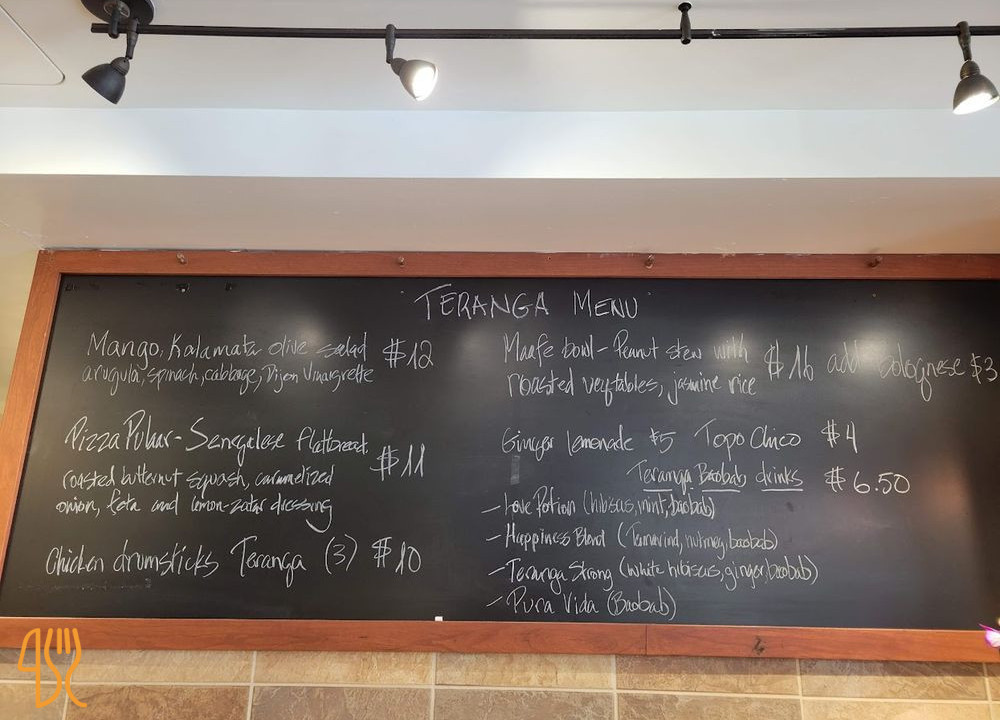 TERANGA MENU
Mango, Kalamata olive salad $12
arugula, spinach, cabbage, Dijon Vinaigrette
Pizza Pulaar - Senegalese flatbread
$11
roasted butternut squash, caramelized
onion, feta and lemon-zatar dressing
Chicken drumsticks Teranga (3) $10
Maafe bowl - Peanut stew with $16 add bolognese $3
roasted vegtables, jasmine rice
Ginger lemonade $5 Topo Chico $4
Teranga Baobab drinks $6.50
- Love Portion (hibiscus, mint, baobab)
- Happiness Blend (Tamarind, nutmeg, baobab)
- Teranga Strong (white hibiscus, ginger, baobab)
- Pura Vida (Baobab)